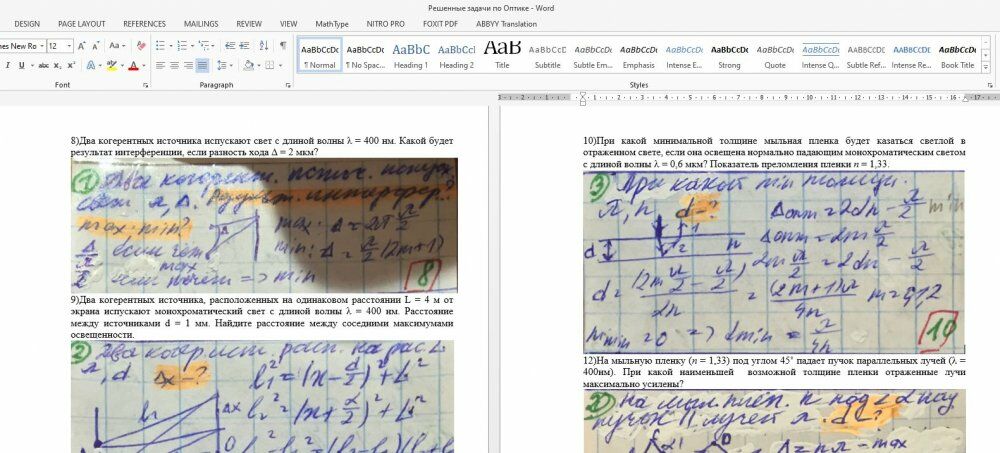 Решенные задачи по Оптике - Word
DESIGN PAGE LAYOUT REFERENCES MAILINGS REVIEW VIEW MathType NITRO PRO FOXIT PDF ABBYY Translation
nes New Ro 12 A A Aa
I U abc X₂ X² A
Font Paragraph Styles
AaBbCcDc AaBbCcDc AaBbC AaBbCcI AaB AaBbCcD AaBbCcDc AaBbCcDc AaBbCcDc AaBbCcDc AaBbCcDc AaBbCcDc AaBbCcDD AaBbCcDE AaBbCcDc
¶ Normal ¶ No Spac... Heading 1 Heading 2 Title Subtitle Subtle Em... Emphasis Intense E... Strong Quote Intense Q... Subtle Ref... Intense Re... Book Title
8)Два когерентных источника испускают свет с длиной волны λ = 400 нм. Какой будет
результат интерференции, если разность хода Δ = 2 мкм?
1 Два когерентн.
свет λ, Δ.
max; min?
max: Δ = 2m λ/2
min: Δ = λ/2 (2m+1)
Δ
λ/2
если чет max
если нечет => min
8
9)Два когерентных источника, расположенных на одинаковом расстоянии L = 4 м от
экрана испускают монохроматический свет с длиной волны λ = 400 нм. Расстояние
между источниками d = 1 мм. Найдите расстояние между соседними максимумами
освещенности.
2 Два когер ист. расп. на рас. L
λ, d Δx - ?
l₁² = (x - d/2)² + L²
l₂² = (x + d/2)² + L²
l₂ Δx
0
10)При какой минимальной толщине мыльная пленка будет казаться светлой в
отраженном свете, если она освещена нормально падающим монохроматическим светом
с длиной волны λ = 0,6 мкм? Показатель преломления пленки n = 1,33.
3 При какой min толщи.
λ, n d = ?
Δопт = 2dn - λ/2 min
Δопт = 2m λ/2
d 1 2 n
2m λ/2 = 2dn - λ/2
d = (2m λ/2 - λ/2) / 2n = (2m+1)λ / 4n m = 0,1,2
m min = 0 => d min = λ/4n
10
12)На мыльную пленку (n = 1,33) под углом 45° падает пучок параллельных лучей (λ =
400нм). При какой наименьшей возможной толщине пленки отраженные лучи
максимально усилены?
на мыл плен. n под < α пад
пучок || лучей λ. d - ?
Δ = nλ - max